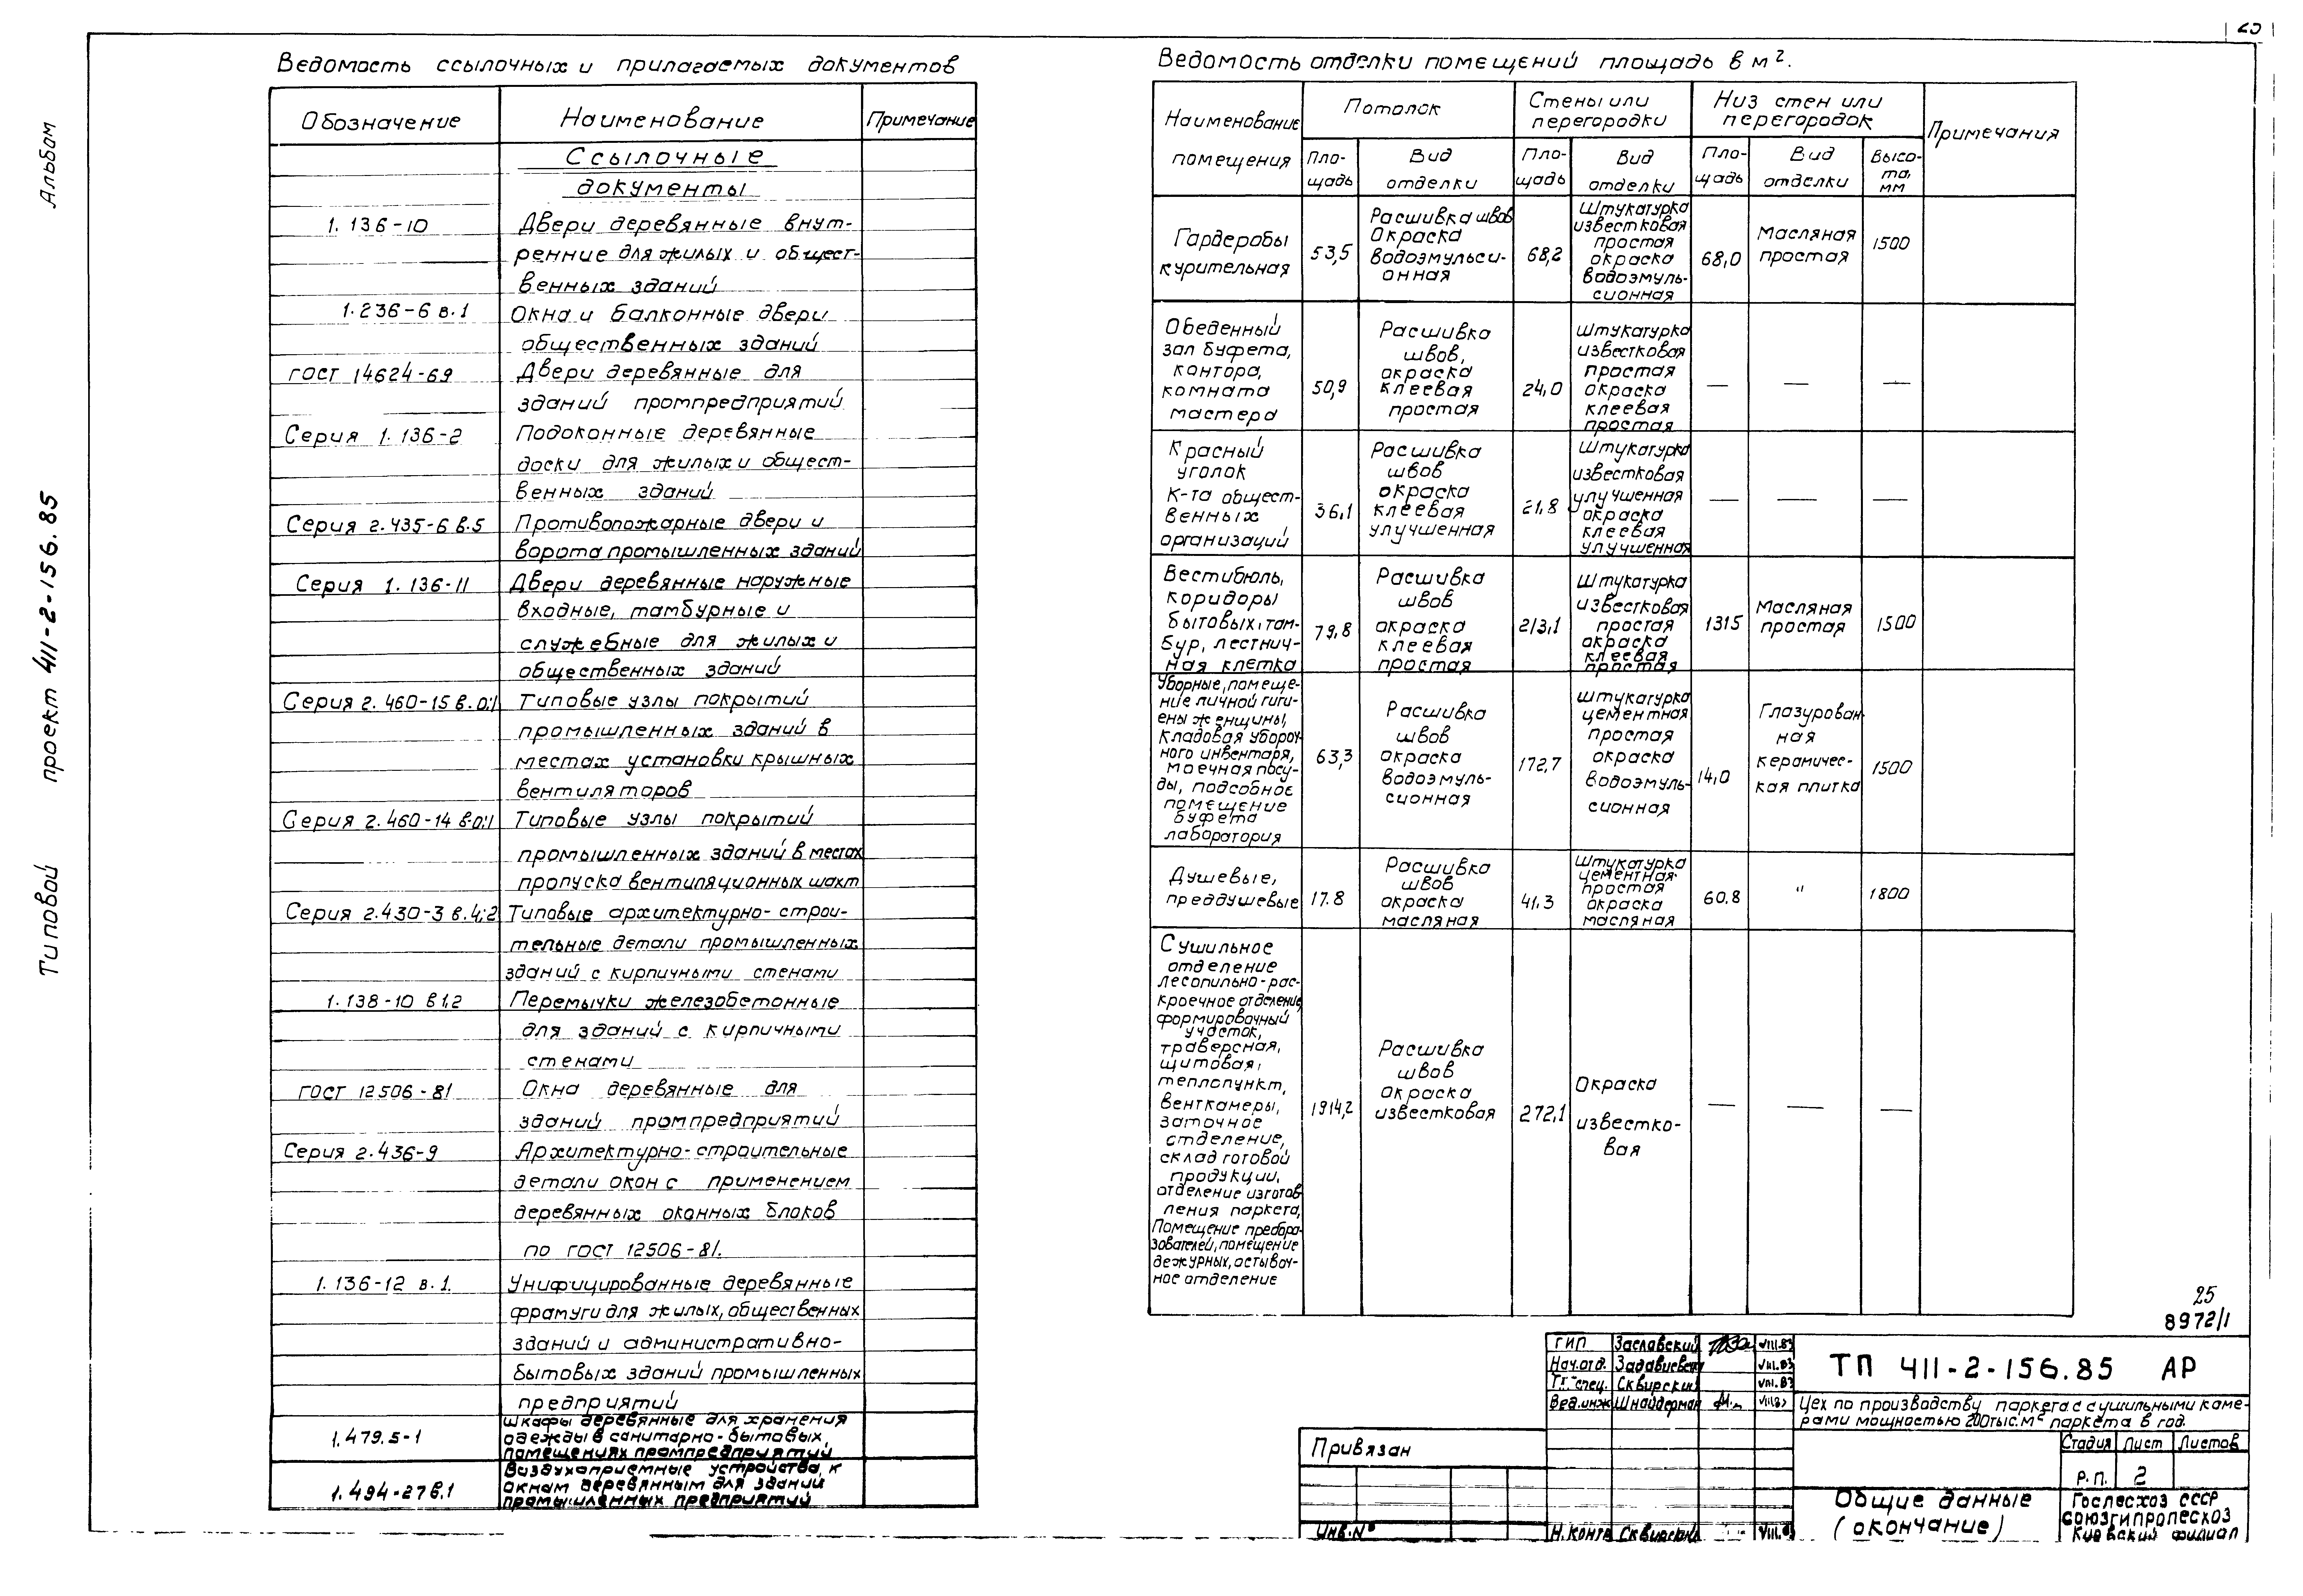 25
Альбом
Типовой проект 411-2-156.85
Ведомость ссылочных и прилагаемых документов
Обозначение Наименование Примечание
Ссылочные
документы
1.136-10 Двери деревянные внут-
ренние для жилых и общест-
венных зданий
1.236-6 в.1 Окна и балконные двери
общественных зданий
ГОСТ 14624-69 Двери деревянные для
зданий промпредприятий
Серия 1.136-2 Подоконные деревянные
доски для жилых и общест-
венных зданий
Серия 2.435-6 в.5 Противопожарные двери и
ворота промышленных зданий
Серия 1.136-11 Двери деревянные наружные
входные, тамбурные и
служебные для жилых и
общественных зданий
Серия 2.460-15 в.0;1 Типовые узлы покрытий
промышленных зданий в
местах установки крышных
вентиляторов
Серия 2.460-14 в.0;1 Типовые узлы покрытий
промышленных зданий в местах
пропуска вентиляционных шахт
Серия 2.430-3 в.4;2 Типовые архитектурно-строи-
тельные детали промышленных
зданий с кирпичными стенами
1.138-10 в1.2 Перемычки железобетонные
для зданий с кирпичными
стенами
ГОСТ 12506-81 Окна деревянные для
зданий промпредприятий
Серия 2.436-9 Архитектурно-строительные
детали окон с применением
деревянных оконных блоков
по ГОСТ 12506-81.
1.136-12 в.1. Унифицированные деревянные
фрамуги для жилых, общественных
зданий и административно-
бытовых зданий промышленных
предприятий
1.479.5-1 Шкафы деревянные для хранения
одежды в санитарно-бытовых
помещениях промпредприятий
1.494-27 в.1 Воздухоприемные устройства, к
окнам деревянным для зданий
промышленных предприятий
Ведомость отделки помещений площадь в м².
Наименование
помещения
Потолок
Стены или
перегородки
Низ стен или
перегородок
Примечания
Пло-
щадь
Вид
отделки
Пло-
щадь
Вид
отделки
Пло-
щадь
Вид
отделки
Высо-
та,
мм
Гардеробы
курительная
53,5
Расшивка швов
Окраска
водоэмульси-
онная
68,2
Штукатурка
известковая
простая
окраска
водоэмуль-
сионная
68,0
Масляная
простая
1500
Обеденный
зал буфета,
контора,
комната
мастера
50,9
Расшивка
швов,
окраска
клеевая
простая
24,0
Штукатурка
известковая
простая
окраска
клеевая
простая
— — —
Красный
уголок
К-та общест-
венных
организаций
36,1
Расшивка
швов
окраска
клеевая
улучшенная
21,8
Штукатурка
известковая
улучшенная
окраска
клеевая
улучшенная
— — —
Вестибюль,
коридоры
бытовых, там-
бур, лестнич-
ная клетка
79,8
Расшивка
швов
окраска
клеевая
простая
213,1
Штукатурка
известковая
простая
окраска
клеевая
простая
1315
Масляная
простая
1500
Уборные, помеще-
ние личной гиги-
ены женщины,
кладовая убороч-
ного инвентаря,
моечная посу-
ды, подсобное
помещение
буфета
лаборатория
63,3
Расшивка
швов
окраска
водоэмуль-
сионная
172,7
Штукатурка
цементная
простая
окраска
водоэмуль-
сионная
14,0
Глазурован
ная
керамичес-
кая плитка
1500
Душевые,
преддушевые
17.8
Расшивка
швов
окраска
масляная
41.3
Штукатурка
цементная
простая
окраска
масляная
60.8
"
1800
Сушильное
отделение
лесопильно-рас-
кроечное отделение,
формировочный
участок,
траверсная,
щитовая,
теплопункт,
венткамеры,
заточное
отделение,
склад готовой
продукции,
отделение изготов
ления паркета,
Помещение преобра-
зователей, помещение
дежурных, остывоч-
ное отделение
1914,2
Расшивка
швов
окраска
известковая
272,1
Окраска
известко-
вая
— — —
25
8972/1
ГИП Заславский VIII.83
Нач.отд. VIII.83
спец. Сквирский VIII.83
Вед.инж Шнайдерман VIII.83
Н.контр Сквирский VIII.83
Привязан
Инв.N°
ТП 411-2-156.85 АР
Цех по производству паркета с сушильными каме-
рами мощностью 200тыс.м² паркета в год.
Стадия Лист Листов
Р.П. 2
Общие данные
(окончание)
Гослесхоз СССР
СОЮЗГИПРОЛЕСХОЗ
Киевский филиал